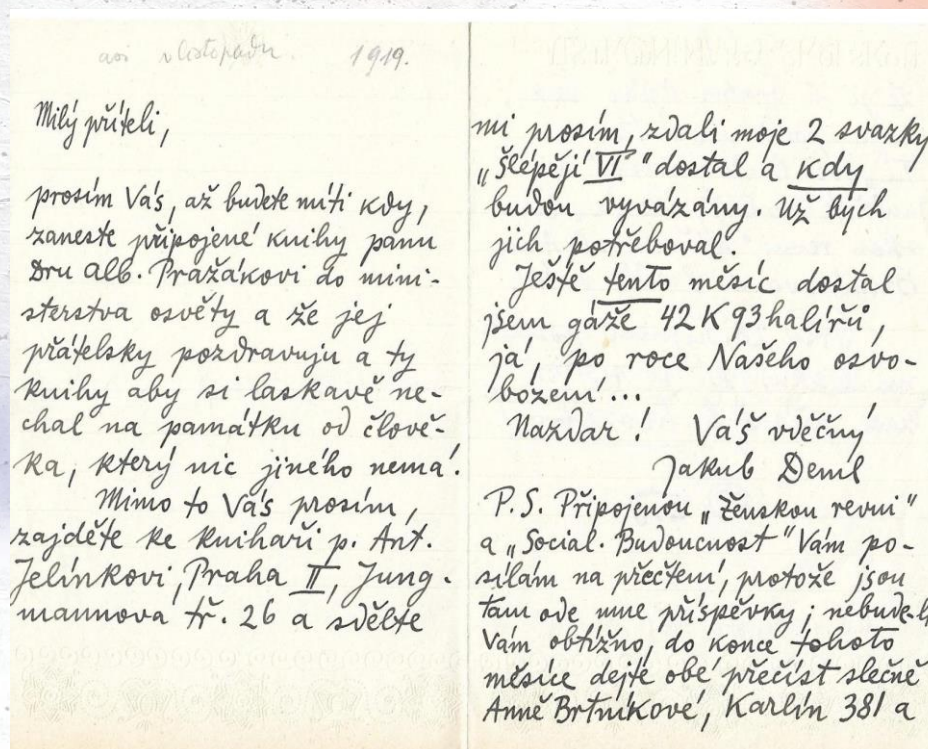 asi v listopadu. 1919.
Milý příteli,
prosím Vás, až budete míti kdy,
zaneste připojené knihy panu
Dru Alb. Pražákovi do mini-
sterstva osvěty a že jej
přátelsky pozdravuju a ty
knihy aby si laskavě ne-
chal na památku od člově-
ka, který nic jiného nemá.
Mimo to Vás prosím,
zajděte ke knihaři p. Ant.
Jelínkovi, Praha II, Jung-
mannova tř. 26 a sdělte
mi prosím, zdali moje 2 svazky
„Šlépějí VI" dostal a kdy
budou vyvázány. Už bych
jich potřeboval.
Ještě tento měsíc dostal
jsem gáže 42 K 93 halířů,
já, po roce Našeho osvo-
bození...
Nazdar! Váš vděčný
Jakub Deml
P.S. Připojenou „Ženskou revui"
a „Social. Budoucnost" Vám po-
sílám na přečtení, protože jsou
tam ode mne příspěvky; nebude-li
Vám obtížno, do konce tohoto
měsíce dejte obé přečíst slečně
Anně Brtníkové, Karlín 381 a